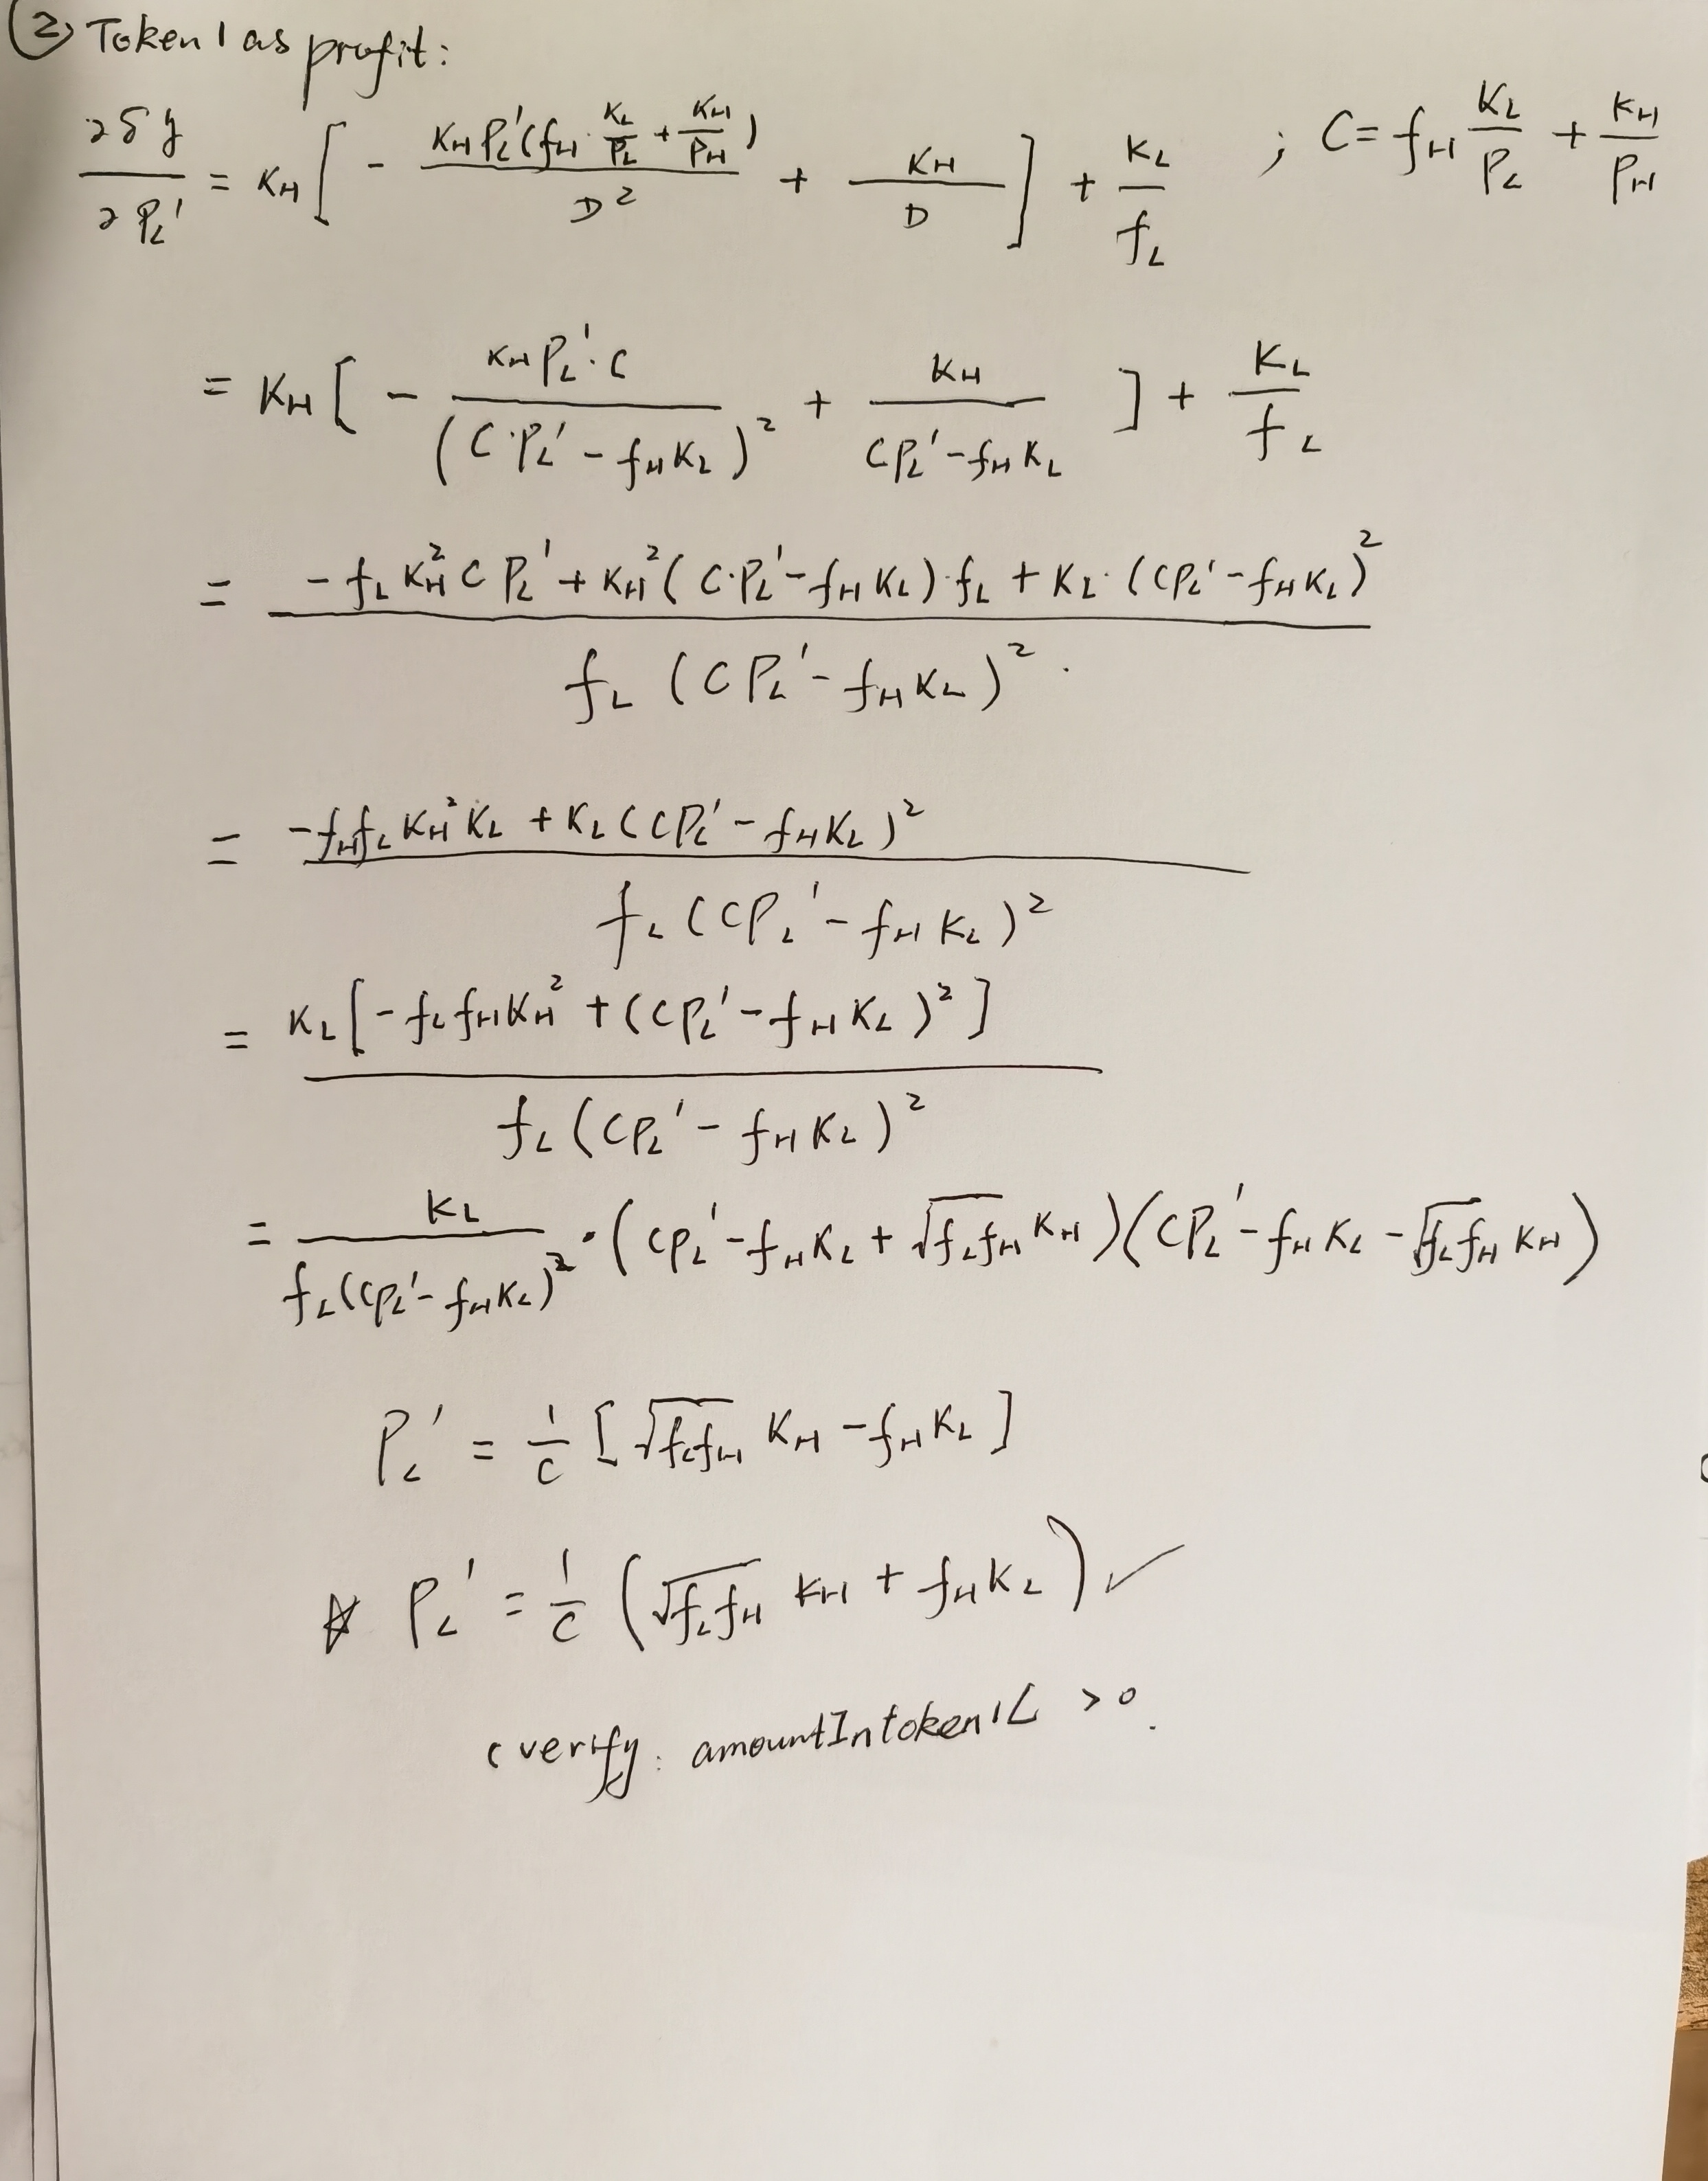 ② Token 1 as profit:
∂δy/∂P_L' = K_H [ - K_H P_L' (f_H · K_L/P_L + K_H/P_H) / D² + K_H/D ] + K_L/f_L ; C = f_H K_L/P_L + K_H/P_H
= K_H [ - K_H P_L' · C / (C · P_L' - f_H K_L)² + K_H / (C P_L' - f_H K_L) ] + K_L/f_L
= (- f_L K_H² C P_L' + K_H² (C · P_L' - f_H K_L) · f_L + K_L · (C P_L' - f_H K_L)²) / (f_L (C P_L' - f_H K_L)²) .
= (- f_H f_L K_H² K_L + K_L (C P_L' - f_H K_L)²) / (f_L (C P_L' - f_H K_L)²)
= K_L [ - f_L f_H K_H² + (C P_L' - f_H K_L)² ] / (f_L (C P_L' - f_H K_L)²)
= K_L / (f_L (C P_L' - f_H K_L)²) · (C P_L' - f_H K_L + √(f_L f_H) K_H)(C P_L' - f_H K_L - √(f_L f_H) K_H)
P_L' = 1/C [ √(f_L f_H) K_H - f_H K_L ]
☆ P_L' = 1/C ( √(f_L f_H) K_H + f_H K_L ) ✓
( verify: amountIntoken1L > 0 .